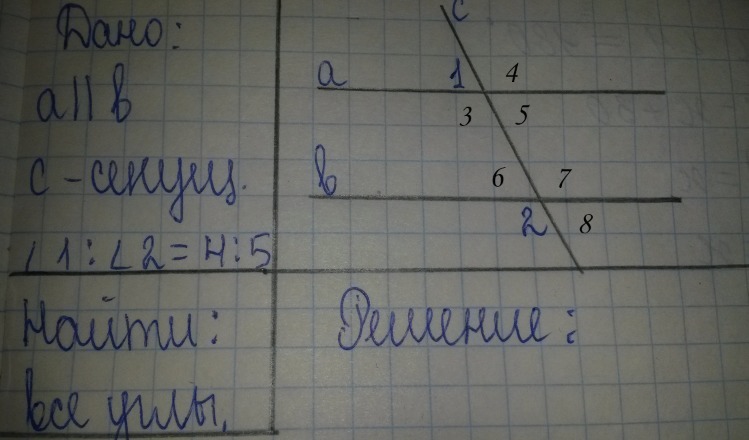 Дано:
a || в
с - секущ.
∠1 : ∠2 = 4 : 5
Найти:
все углы.
с
a
1 4
3 5
в
6 7
2 8
Решение: